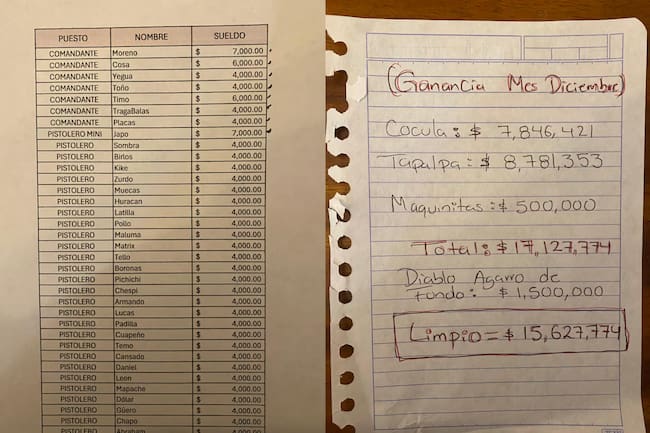 PUESTO NOMBRE SUELDO
COMANDANTE Moreno $ 7,000.00
COMANDANTE Cosa $ 6,000.00
COMANDANTE Yegua $ 4,000.00
COMANDANTE Toño $ 4,000.00
COMANDANTE Timo $ 6,000.00
COMANDANTE TragaBalas $ 4,000.00
COMANDANTE Placas $ 4,000.00
PISTOLERO MINI Japo $ 7,000.00
PISTOLERO Sombra $ 4,000.00
PISTOLERO Birlos $ 4,000.00
PISTOLERO Kike $ 4,000.00
PISTOLERO Zurdo $ 4,000.00
PISTOLERO Muecas $ 4,000.00
PISTOLERO Huracan $ 4,000.00
PISTOLERO Latilla $ 4,000.00
PISTOLERO Pollo $ 4,000.00
PISTOLERO Maluma $ 4,000.00
PISTOLERO Matrix $ 4,000.00
PISTOLERO Tello $ 4,000.00
PISTOLERO Boronas $ 4,000.00
PISTOLERO Pichichi $ 4,000.00
PISTOLERO Chespi $ 4,000.00
PISTOLERO Armando $ 4,000.00
PISTOLERO Lucas $ 4,000.00
PISTOLERO Padilla $ 4,000.00
PISTOLERO Cuapeño $ 4,000.00
PISTOLERO Temo $ 4,000.00
PISTOLERO Cansado $ 4,000.00
PISTOLERO Daniel $ 4,000.00
PISTOLERO Leon $ 4,000.00
PISTOLERO Mapache $ 4,000.00
PISTOLERO Dólar $ 4,000.00
PISTOLERO Güero $ 4,000.00
PISTOLERO Chapo $ 4,000.00
PISTOLERO Abraham $ 4,000.00
(Ganancia Mes Diciembre)
Cocula: $ 7,846,421
Tapalpa: $ 8,781,353
Maquinitas: $ 500,000
Total: $ 17,127,774
Diablo Agarro de
fondo: $ 1,500,000
Limpio = $ 15,627,774